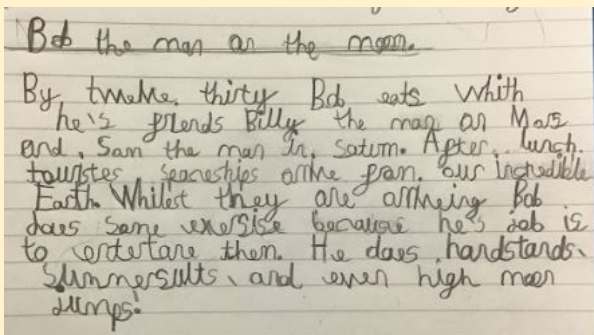 Bob the man on the moon.
By twelve, thirty Bob eats whith
he's friends Billy the man on Mars
and, Sam the man in, Saturn. After, lunch.
touristes spaceships arrive fram. our incredible
Earth. Whilest they are arriveing Bob
does some exersise because he's job is
to entertane them. He does, handstands,
Summersults, and even high moon
Jumps!